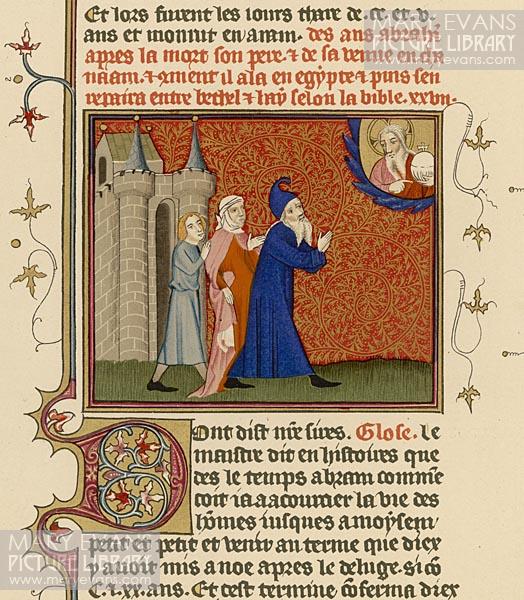 Et lors furent les iours thare de .cc. et .v.
ans et mourut en aram. des ans abrahã
apres la mort son pere. & de sa venue en cha
naam. & cõment il ala en egypte & puis sen
repaira entre bethel & hay selon la bible. xxvii.
Dont dist nr̃e sires. Glose. le
maistre dit en histoires que
des le temps abram comme
coit ia a acourcier la vie des
hõmes iusques a moysem
petit et petit et venir au terme que diex
i auoit mis a noe apres le deluge. si cõ
C. & .xx. ans. Et cest termine cõferma diex
MARY EVANS
PICTURE LIBRARY
www.maryevans.com